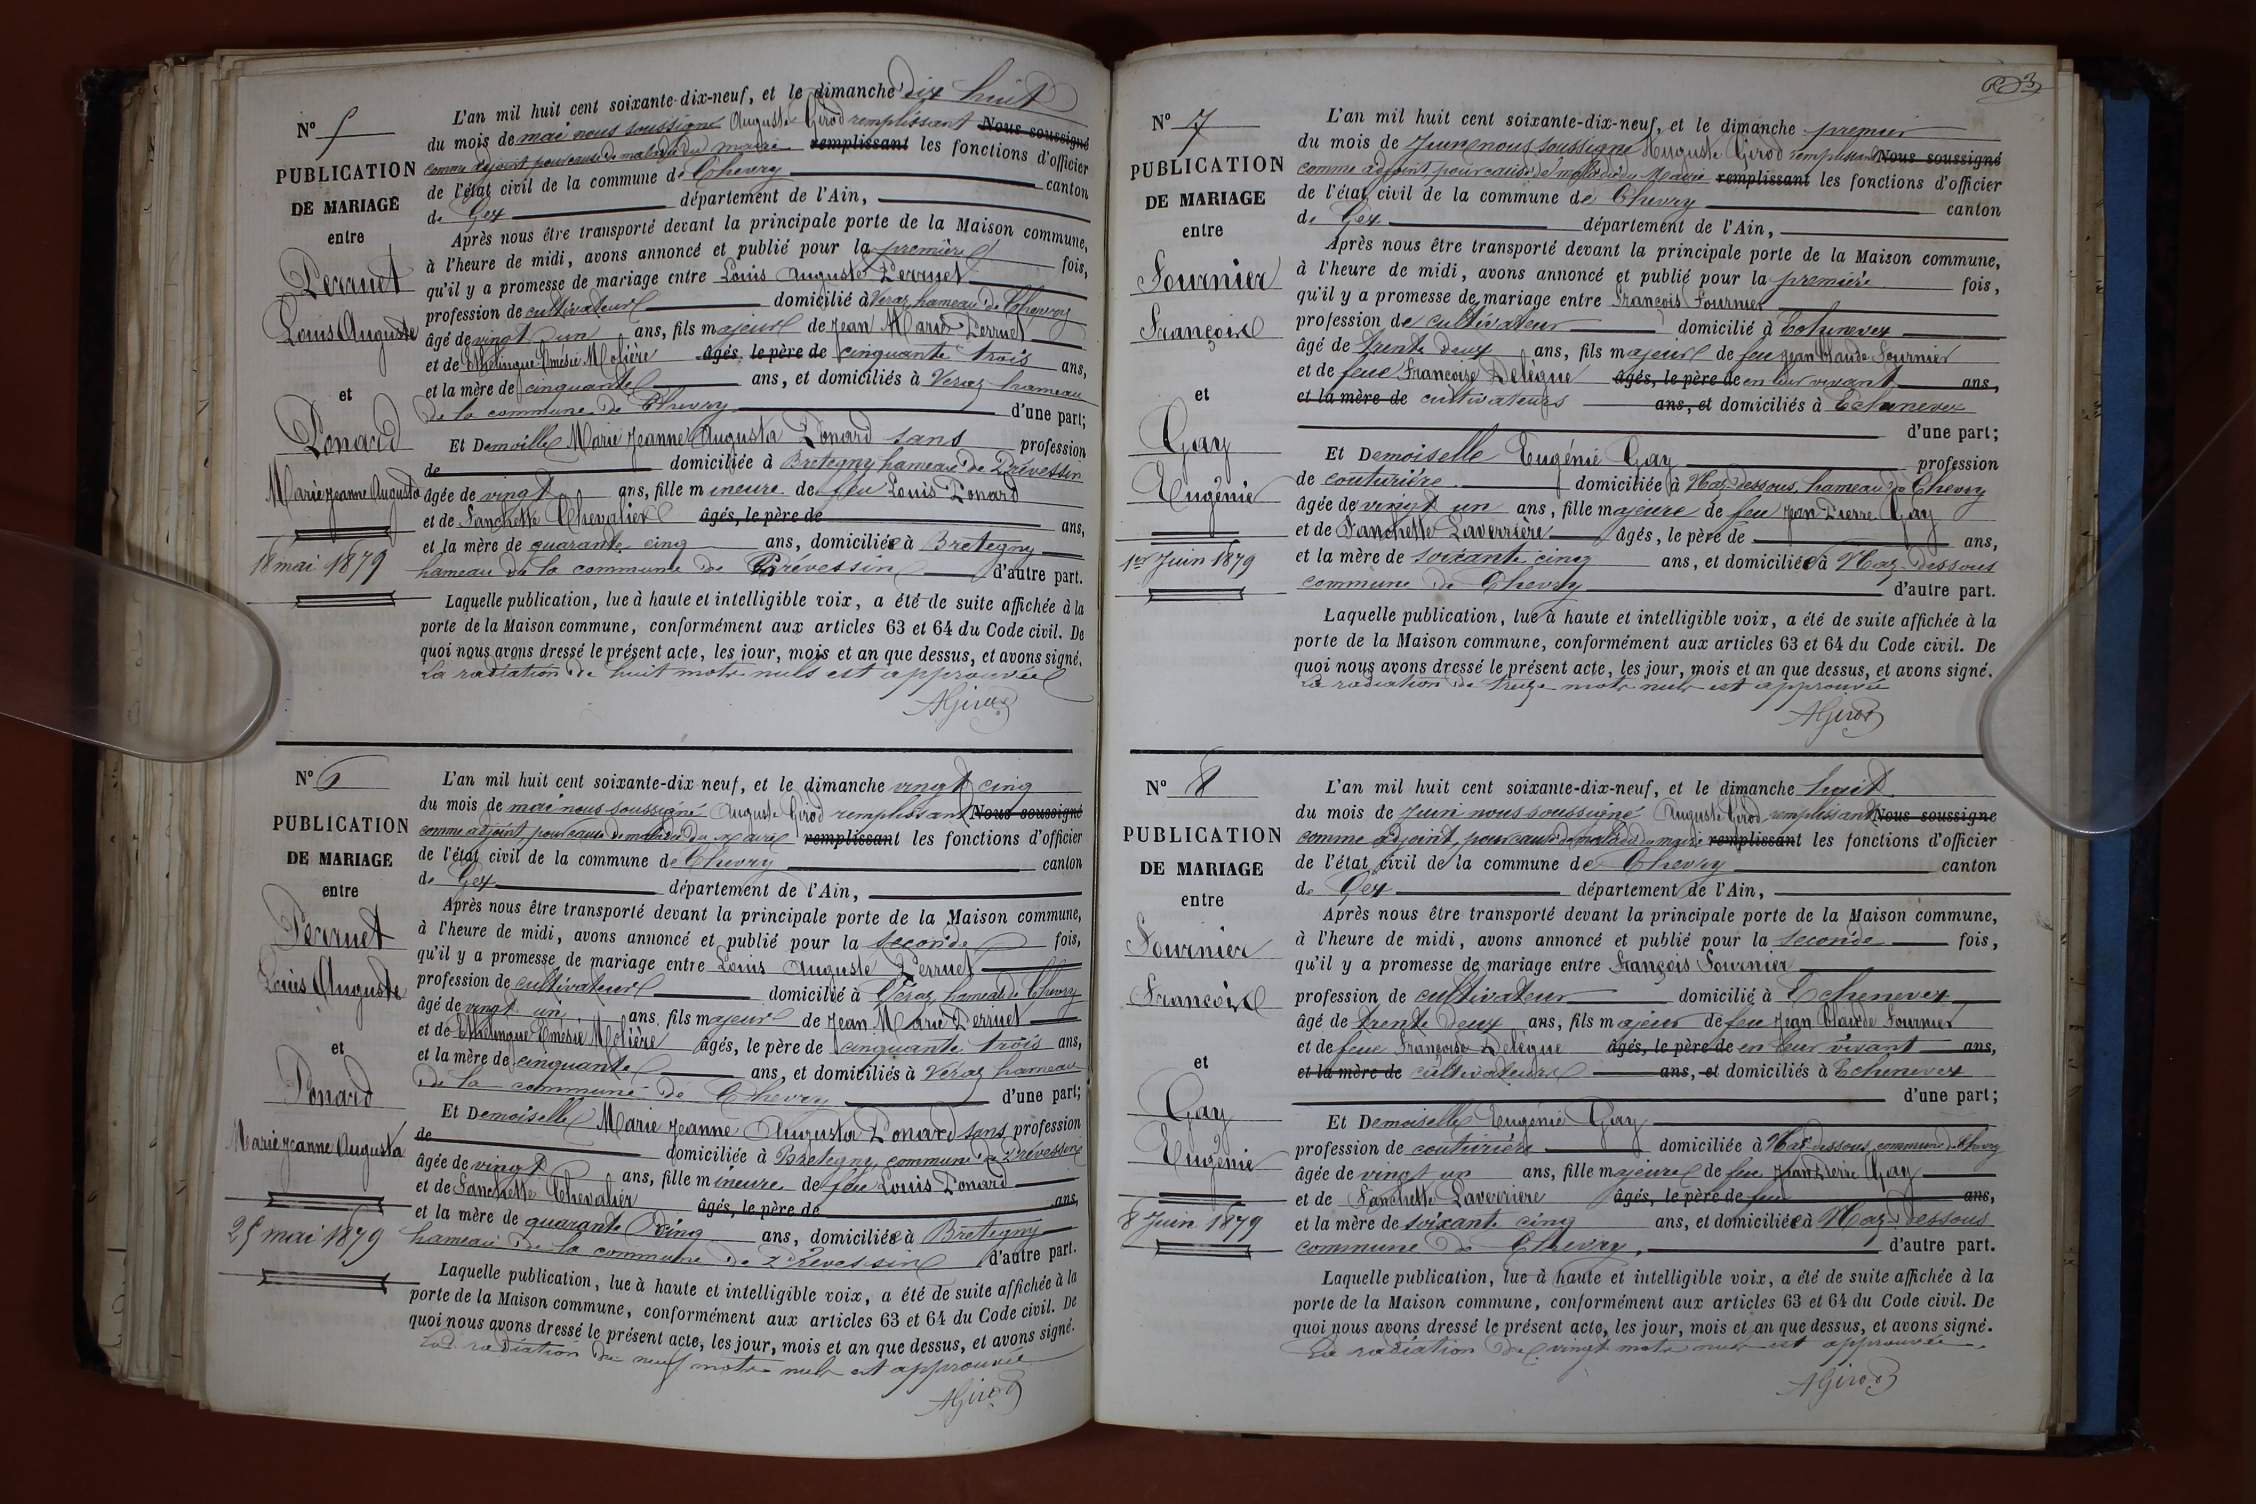 N° 5
PUBLICATION
DE MARIAGE
entre
Perruet
Louis Auguste
et
Ponard
Marie Jeanne Augusta
18 mai 1879
L'an mil huit cent soixante-dix-neuf, et le dimanche dix huit
du mois de mai nous soussigné Auguste Girod remplissant Nous soussigné
comme adjoint pour cause de maladie du maire remplissant les fonctions d'officier
de l'état civil de la commune de Chevry canton
de Gex département de l'Ain,
Après nous être transporté devant la principale porte de la Maison commune,
à l'heure de midi, avons annoncé et publié pour la première fois,
qu'il y a promesse de mariage entre Louis Auguste Perruet
profession de cultivateur domicilié à Veraz hameau de Chevry
âgé de vingt un ans, fils majeur de Jean Marie Perruet
et de Molière âgés, le père de cinquante trois ans,
et la mère de cinquante ans, et domiciliés à Veraz hameau
de la commune de Chevry d'une part;
Et Demoiselle Marie Jeanne Augusta Ponard sans profession
de domiciliée à Bretegny hameau de Prévessin
âgée de vingt ans, fille mineure de feu Louis Ponard
et de Fanchette Chevalier âgés, le père de ans,
et la mère de quarante cinq ans, domiciliée à Bretegny
hameau de la commune de Prévessin d'autre part.
Laquelle publication, lue à haute et intelligible voix, a été de suite affichée à la
porte de la Maison commune, conformément aux articles 63 et 64 du Code civil. De
quoi nous avons dressé le présent acte, les jour, mois et an que dessus, et avons signé.
La radiation de huit mots nuls est approuvée
AGirod
N° 6
PUBLICATION
DE MARIAGE
entre
Perruet
Louis Auguste
et
Ponard
Marie Jeanne Augusta
25 mai 1879
L'an mil huit cent soixante-dix neuf, et le dimanche vingt cinq
du mois de mai nous soussigné Auguste Girod remplissant Nous soussigné
comme adjoint pour cause de maladie du maire remplissant les fonctions d'officier
de l'état civil de la commune de Chevry canton
de Gex département de l'Ain,
Après nous être transporté devant la principale porte de la Maison commune,
à l'heure de midi, avons annoncé et publié pour la seconde fois,
qu'il y a promesse de mariage entre Louis Auguste Perruet
profession de cultivateur domicilié à Véraz hameau de Chevry
âgé de vingt un ans, fils majeur de Jean Marie Perruet
et de Molière âgés, le père de cinquante trois ans,
et la mère de cinquante ans, et domiciliés à Véraz hameau
de la commune de Chevry d'une part;
Et Demoiselle Marie Jeanne Augusta Ponard sans profession
de domiciliée à Bretegny commune de Prévessin
âgée de vingt ans, fille mineure de feu Louis Ponard
et de Fanchette Chevalier âgés, le père de ans,
et la mère de quarante cinq ans, domiciliée à Bretigny
hameau de la commune de Prévessin d'autre part.
Laquelle publication, lue à haute et intelligible voix, a été de suite affichée à la
porte de la Maison commune, conformément aux articles 63 et 64 du Code civil. De
quoi nous avons dressé le présent acte, les jour, mois et an que dessus, et avons signé.
La radiation de neuf mots nuls est approuvée
AGirod
N° 7
PUBLICATION
DE MARIAGE
entre
Fournier
François
et
Gay
Eugénie
1er Juin 1879
L'an mil huit cent soixante-dix-neuf, et le dimanche premier
du mois de Juin nous soussigné Auguste Girod remplissant Nous soussigné
comme adjoint pour cause de maladie du Maire remplissant les fonctions d'officier
de l'état civil de la commune de Chevry canton
de Gex département de l'Ain,
Après nous être transporté devant la principale porte de la Maison commune,
à l'heure de midi, avons annoncé et publié pour la première fois,
qu'il y a promesse de mariage entre François Fournier
profession de cultivateur domicilié à Echenevex
âgé de trente deux ans, fils majeur de feu Jean Claude Fournier
et de feue Françoise Delègue âgés, le père de en leur vivant ans,
et la mère de cultivateurs ans, et domiciliés à Echenevex
d'une part;
Et Demoiselle Eugénie Gay profession
de couturière domiciliée à Naz-dessous, hameau de Chevry
âgée de vingt un ans, fille majeure de feu Jean Pierre Gay
et de Fanchette Laverrière âgés, le père de ans,
et la mère de soixante cinq ans, et domiciliée à Naz-dessous
commune de Chevry d'autre part.
Laquelle publication, lue à haute et intelligible voix, a été de suite affichée à la
porte de la Maison commune, conformément aux articles 63 et 64 du Code civil. De
quoi nous avons dressé le présent acte, les jour, mois et an que dessus, et avons signé.
La radiation de treize mots nuls est approuvée
AGirod
N° 8
PUBLICATION
DE MARIAGE
entre
Fournier
François
et
Gay
Eugénie
8 Juin 1879
L'an mil huit cent soixante-dix-neuf, et le dimanche huit
du mois de Juin nous soussigné Auguste Girod remplissant Nous soussigné
comme adjoint, pour cause de maladie du maire remplissant les fonctions d'officier
de l'état civil de la commune de Chevry canton
de Gex département de l'Ain,
Après nous être transporté devant la principale porte de la Maison commune,
à l'heure de midi, avons annoncé et publié pour la seconde fois,
qu'il y a promesse de mariage entre François Fournier
profession de cultivateur domicilié à Echenevex
âgé de trente deux ans, fils majeur de feu Jean Claude Fournier
et de feue Françoise Delègue âgés, le père de en leur vivant ans,
et la mère de cultivateurs ans, et domiciliés à Echenevex
d'une part;
Et Demoiselle Eugénie Gay
profession de couturière domiciliée à Naz-dessous, commune de Chevry
âgée de vingt un ans, fille majeure de feu Jean Pierre Gay
et de Fanchette Laverrière âgés, le père de feu ans,
et la mère de soixante cinq ans, et domiciliée à Naz-dessous
commune de Chevry, d'autre part.
Laquelle publication, lue à haute et intelligible voix, a été de suite affichée à la
porte de la Maison commune, conformément aux articles 63 et 64 du Code civil. De
quoi nous avons dressé le présent acte, les jour, mois et an que dessus, et avons signé.
La radiation de vingt mots nuls est approuvée
AGirod